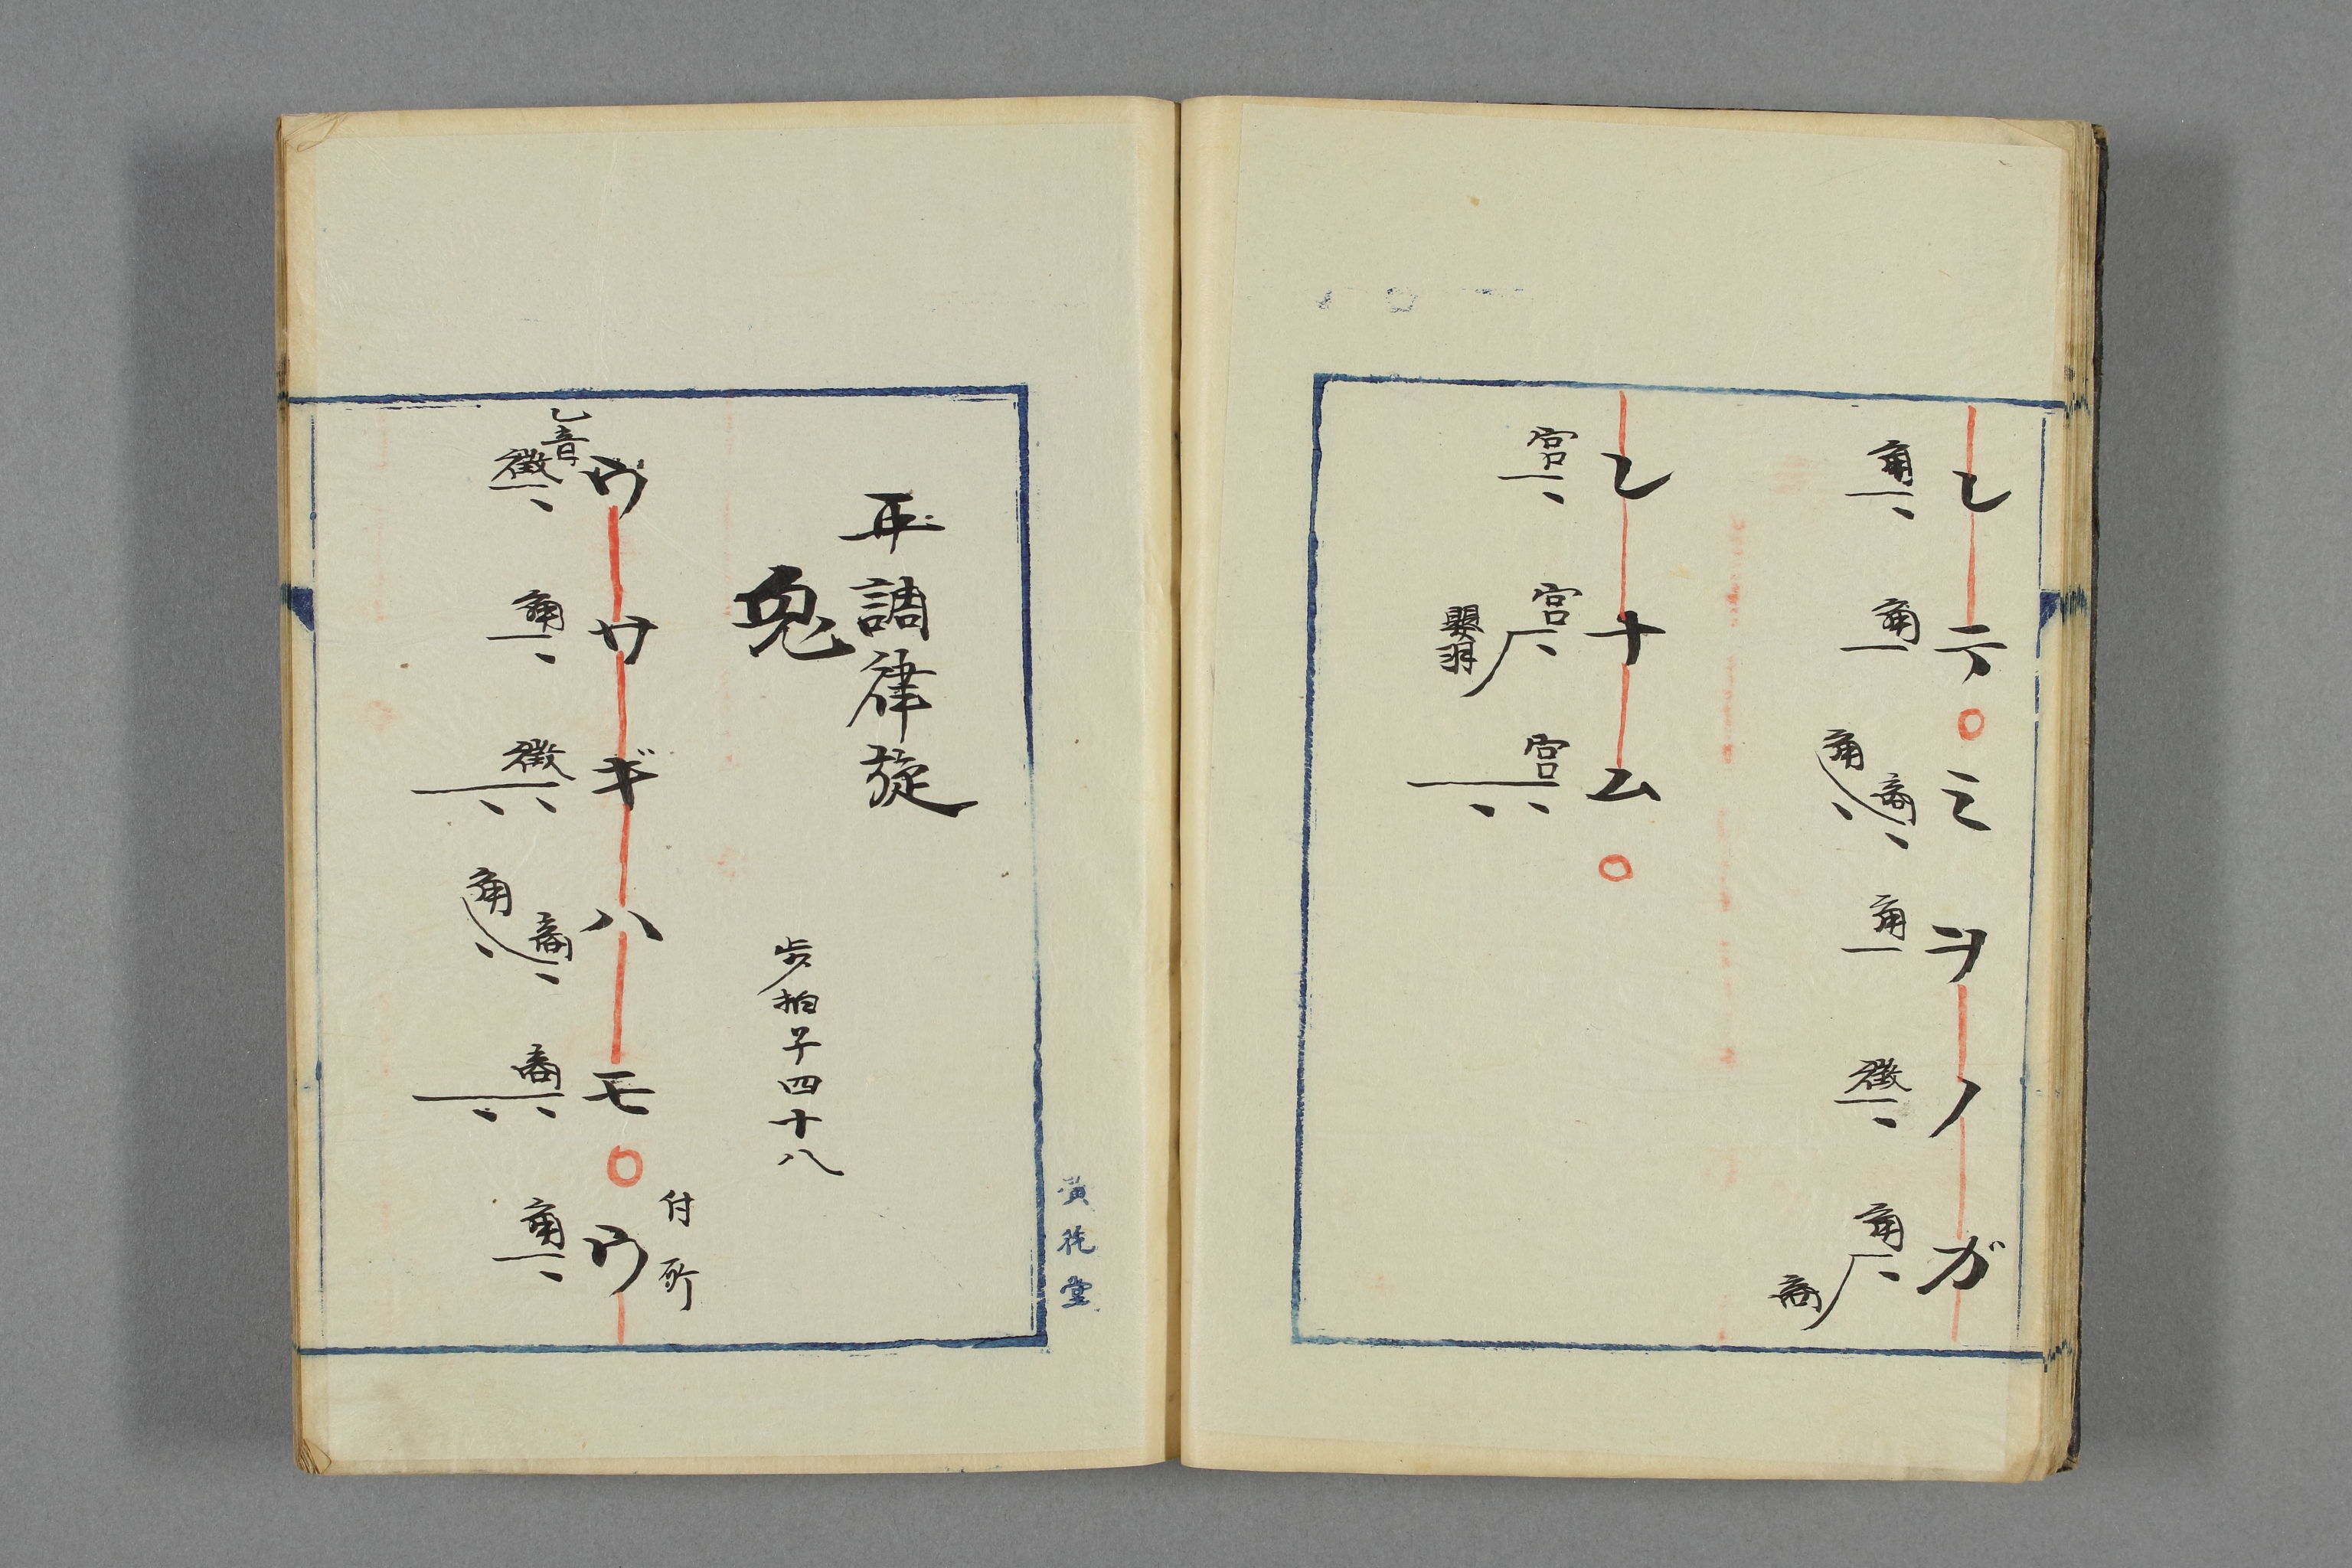 レテ○ミヲノガ
角 角 角 商 角 徴 角 商
レナム○
宮 宮 嬰羽 宮
平調律旋
兎 歩拍子四十八
付所
ウサギハモ○ウ
乙音
徴 角 徴 角 商 商 角